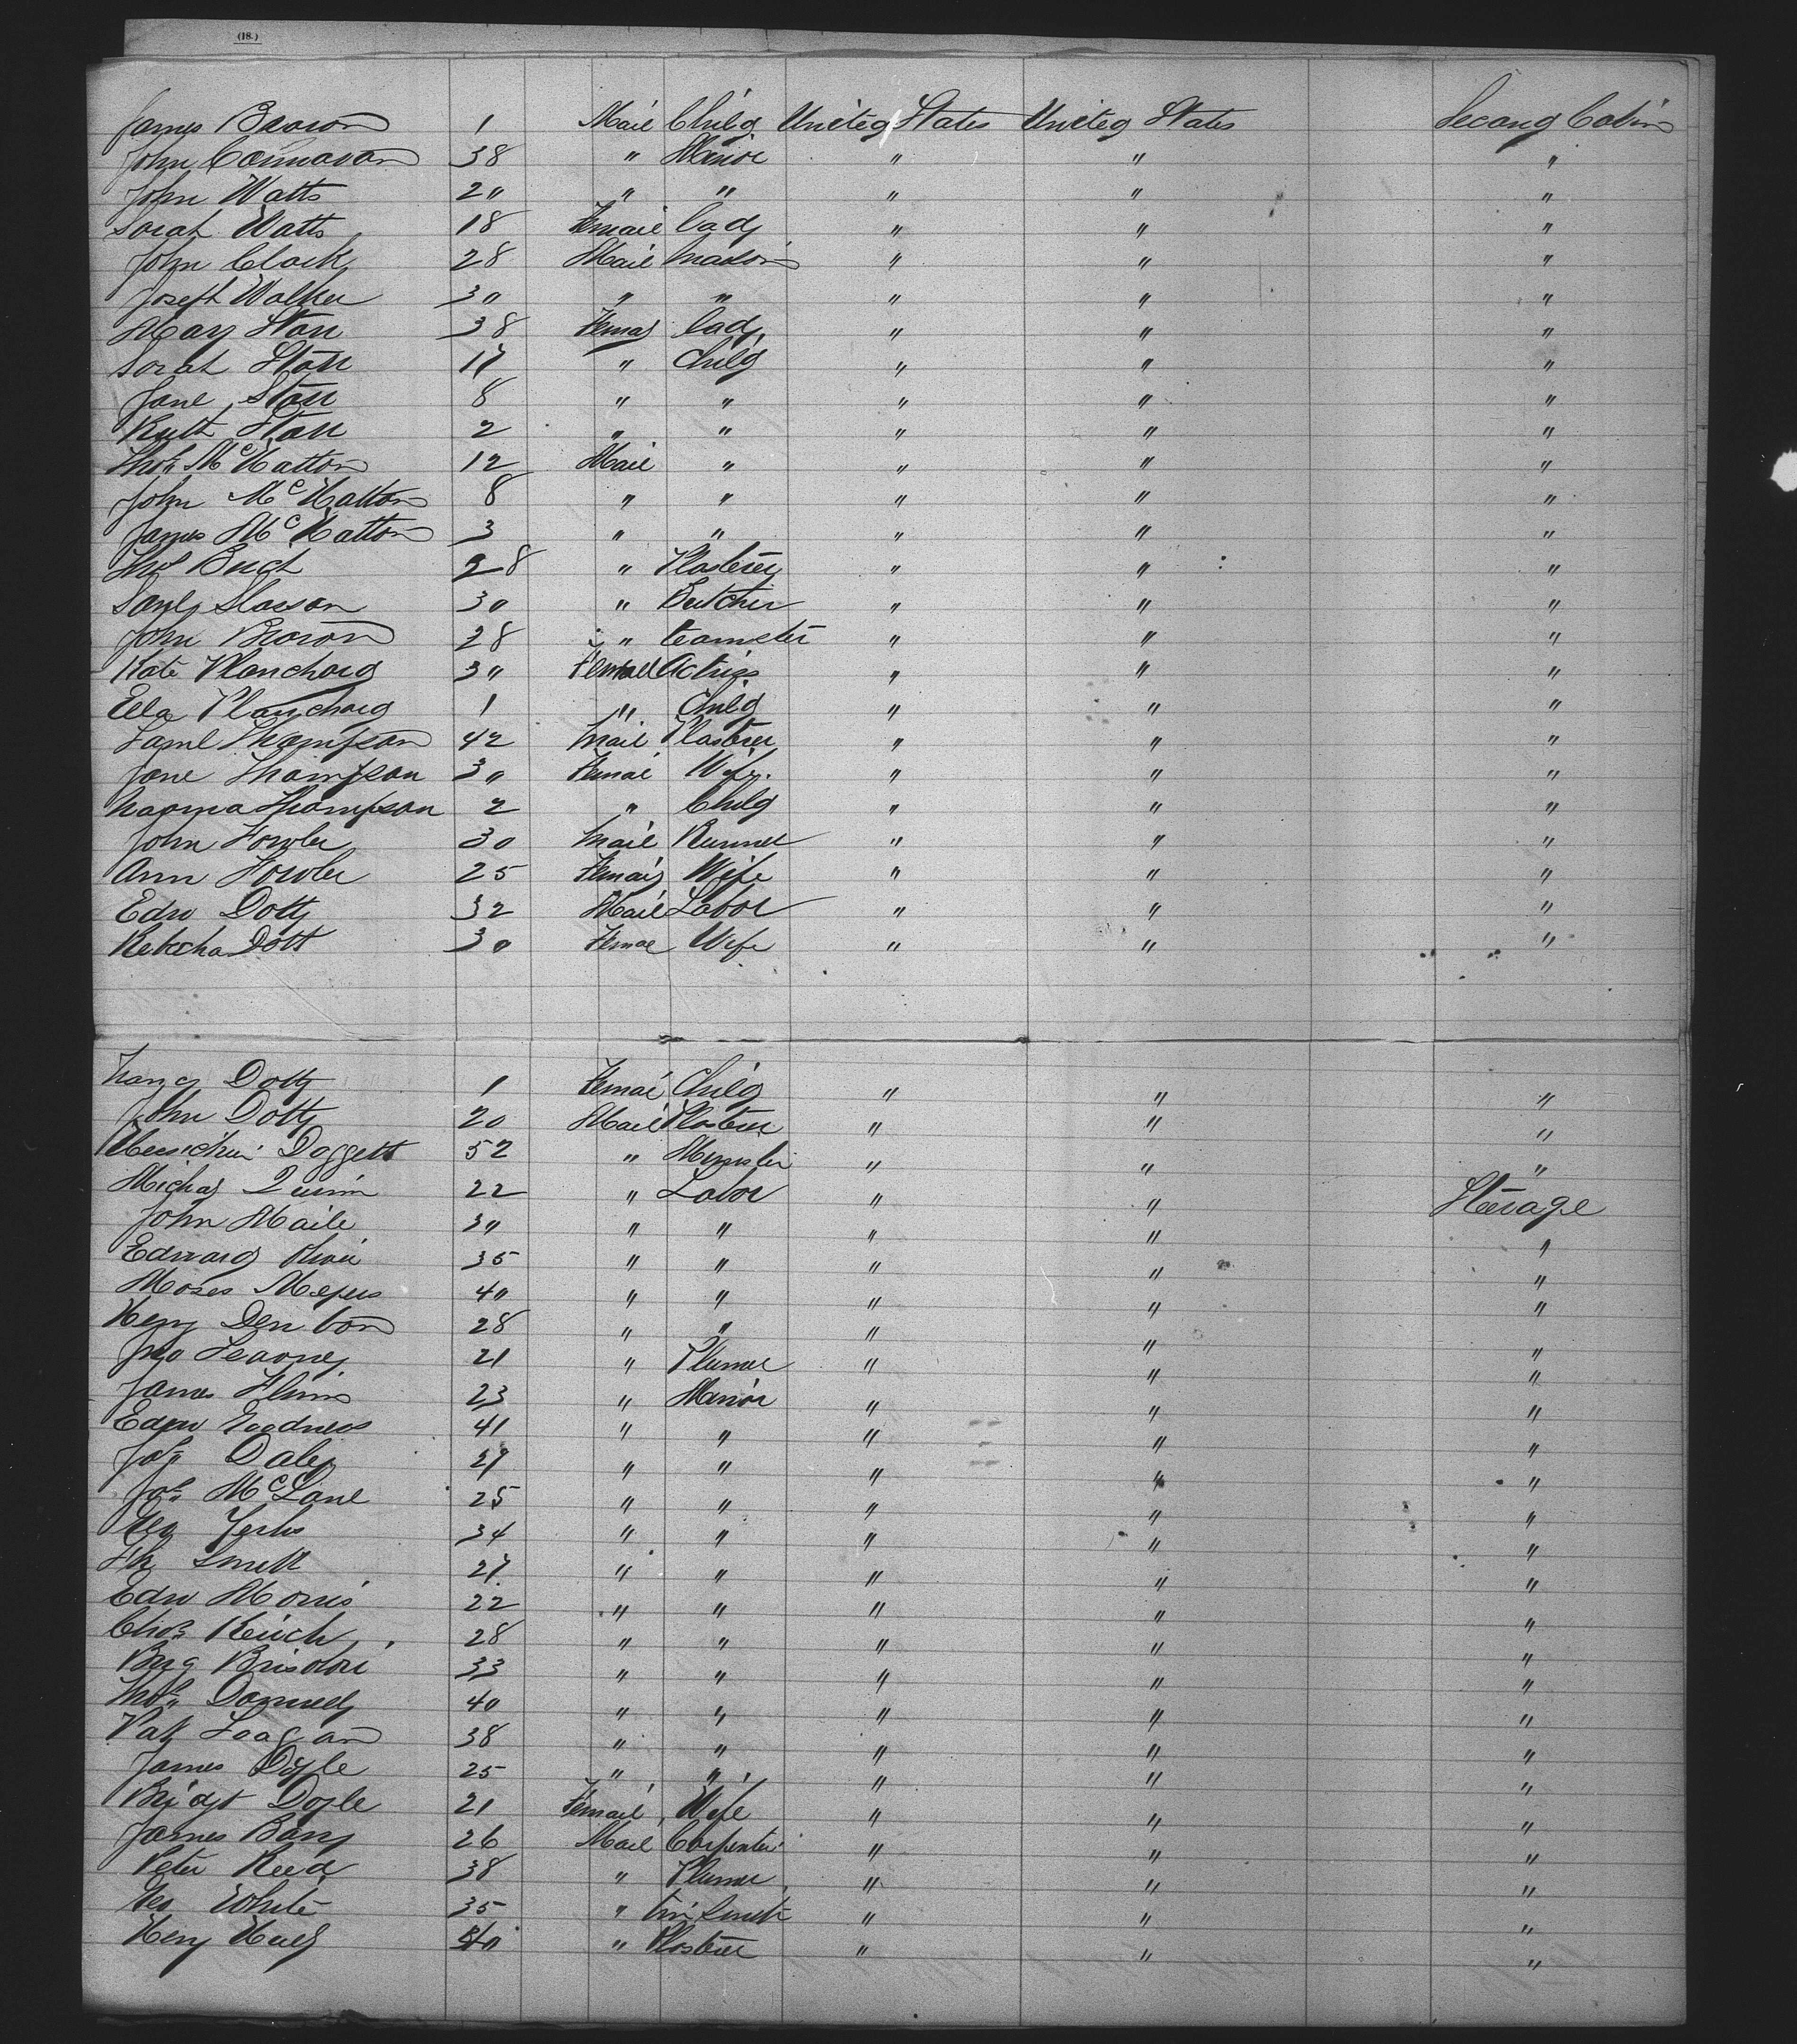 (18.)
James Brown 1 Male Child United States United States Second Cabin
John 38 " Minor " " "
John Watts 20 " " " " "
Sarah Watts 18 Female Lady " " "
John Clark 28 Male Mason " " "
Joseph Walker 30 " " " " "
Mary Starr 38 Female Lady " " "
Sarah Starr 17 " Child " " "
Jane Starr 8 " " " " "
Ruth Starr 2 " " " " "
Thos McHatton 12 Male " " " "
John McHatton 8 " " " " "
James McHatton 3 " " " " "
Thos 28 " Plasterer " " "
Saml Slasson 30 " Butcher " " "
John Brown 28 " teamster " " "
Kate Planchard 30 Female Actriss " " "
Ella Planchard 1 " Child " " "
Saml Thompson 42 Male Plasterer " " "
Jane Thompson 30 Female Wife " " "
Naoma Thompson 2 " Child " " "
John Fowler 30 Male Runner " " "
Ann Fowler 25 Female Wife " " "
Edw Dotty 32 Male Labor " " "
Dott 30 Female Wife " " "
Nancy Dotty 1 Female Child " " "
John Dotty 20 Male Plasterer " " "
Doggett 52 " Minister " " "
Michal Quinn 22 " Labor " " Sterage
John Maile 30 " " " " "
Edward 35 " " " " "
Moses Meyers 40 " " " " "
Henry Denton 28 " " " " "
Jno Learney 21 " Plumer " " "
James Flinn 23 " Minor " " "
Edw Goodness 41 " " " " "
Jos Daley 27 " " " " "
Jos McLane 25 " " " " "
Geo 34 " " " " "
Fk Smith 27 " " " " "
Edw Morris 22 " " " " "
Chos 28 " " " " "
33 " " " " "
Thos Donnely 40 " " " " "
Pat 38 " " " " "
James Doyle 25 " " " " "
Bridgt Doyle 21 Female Wife " " "
James Barry 26 Male Carpenter " " "
Peter Reed 38 " Plumer " " "
Geo White 35 " tin Smith " " "
Henry 40 " Plasterer " " "